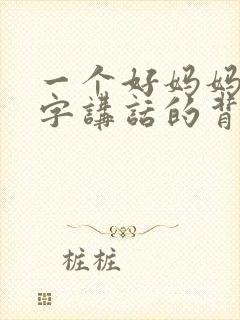 一个好妈妈
字講話的背
桩桩